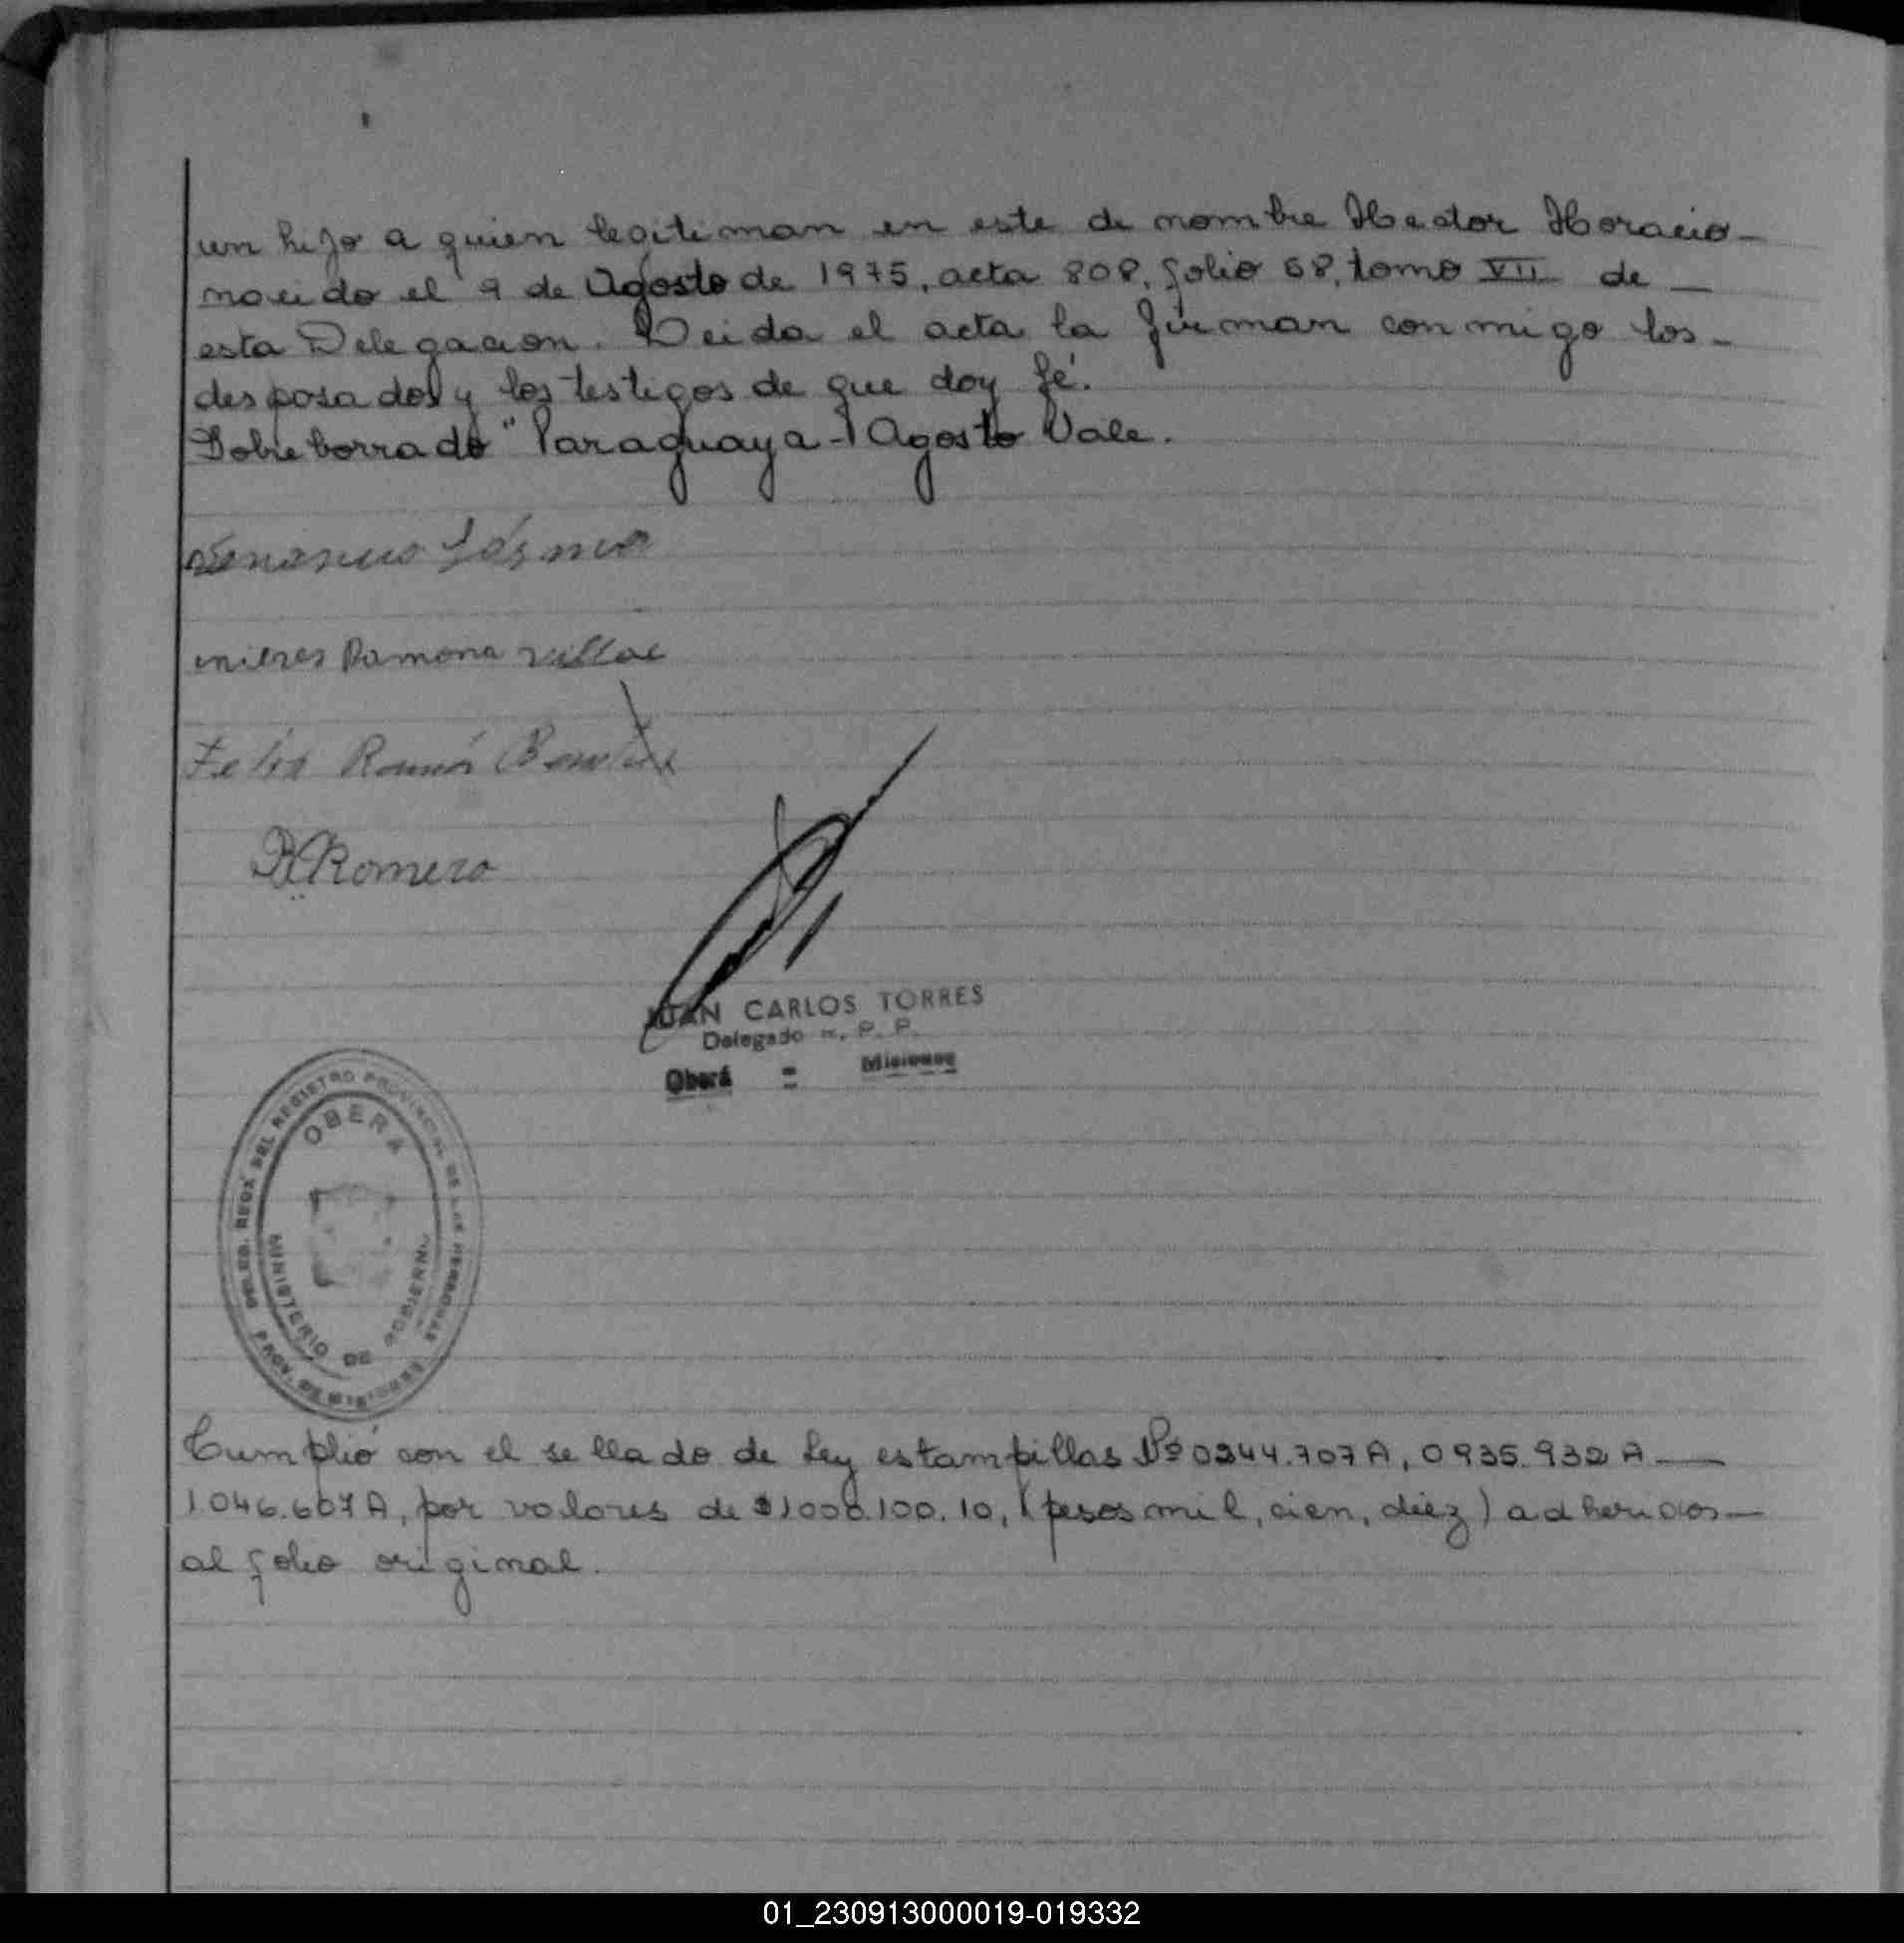 un hijo a quien legitiman en este de nombre Hector Horacio-
nacido el 9 de Agosto de 1975, acta 808, folio 68, tomo VII de -
esta Delegacion. Leida el acta la firman conmigo los -
desposados y los testigos de que doy fé.
Sobreborrado "Paraguaya - Agosto Vale.
Ramona
Felix Ramón
Romero
JUAN CARLOS TORRES
Delegado R. P. P.
Oberá = Misiones
DELEG. REGX DEL REGISTRO PROVINCIAL DE LAS PERSONAS
OBERÁ
MINISTERIO DE GOBIERNO
PROV. DE MISIONES
Cumplió con el sellado de Ley estampillas Nº 0344.707 A, 0935.932 A -
1.046.607 A, por valores de $1000.100.10, (pesos mil, cien, diez) adheridos -
al folio original.
01_230913000019-019332